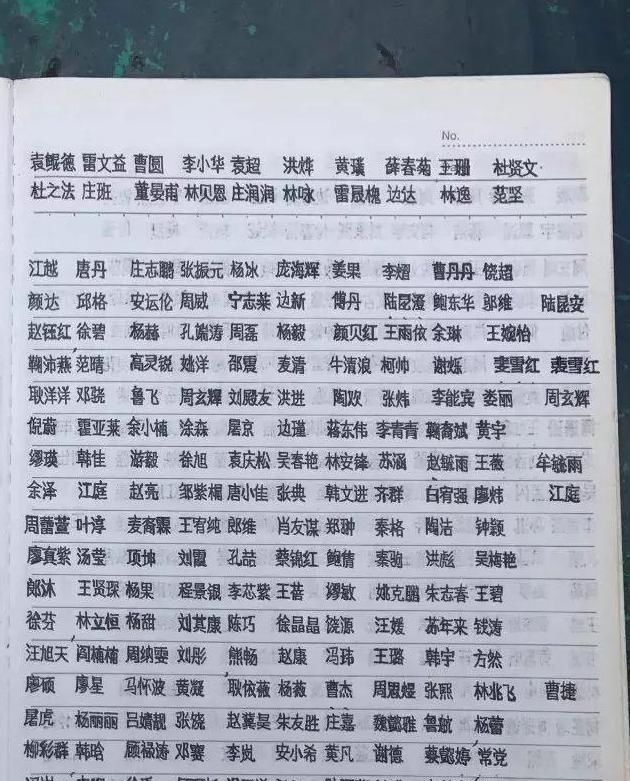 No.
袁鲲德 雷文益 曹圆 李小华 袁超 洪烨 黄瑱 薛春菊 王珊 杜贤文
杜之法 庄班 董晏甫 林贝恩 庄润润 林咏 雷晟槐 边达 林逸 范坚
江越 唐丹 庄志鹏 张振元 杨冰 庞海辉 姜果 李熠 曹丹丹 饶超
颜达 邱格 安运伦 周威 宁志莱 边新 傅丹 鲍东华 邬维 陆昆安
赵钰红 徐碧 杨赫 孔嵛涛 周磊 杨毅 颜贝红 王雨依 余琳 王婉怡
鞠沛燕 范晴 高灵锐 姚洋 邵震 麦清 牛清浪 柯帅 谢烁 裴雪红
耿洋洋 邓骁 鲁飞 周玄辉 刘殿友 洪进 陶奴 张炜 李能宾 娄丽 周玄辉
倪蔚 霍亚莱 余小楠 涂森 屠京 边瑾 蒋东伟 李青青 鞠斎斌 黄宇
缪瑛 韩佳 游毅 徐旭 袁庆松 吴春艳 林安锋 苏涵 赵毓雨 王薇 牟毓雨
余泽 江庭 赵亮 邹紫楣 唐小佳 张典 韩文进 齐群 白宥强 廖炜 江庭
周蕾萱 叶淳 麦裔霖 王宥纯 郎维 肖友谋 郑翀 秦格 陶洁 钟颖
廖真紫 汤莹 项坤 刘霞 孔喆 蔡锦红 鲍倩 秦驰 洪彪 吴梅艳
郎沐 王贤琛 杨果 程景银 李芯紫 王蓓 缪敏 姚克鹏 朱志春 王碧
徐芬 林立恒 杨甜 刘其康 陈巧 徐晶晶 饶源 汪媛 苏年来 钱涛
汪旭天 阎楠楠 周纳雯 刘彤 熊畅 赵康 冯玮 王璐 韩宇 方然
廖硕 廖星 马怀波 黄凝 耿依薇 杨薇 曹杰 周思嫚 张熙 林兆飞 曹捷
屠虎 杨丽丽 吕婧靓 张饶 赵冀昊 朱友胜 庄嘉 魏懿雅 鲁敏 杨蕾
柳彩群 韩晗 顾禄涛 邓窦 李岚 安小希 黄凡 谢德 蔡懿婷 常党